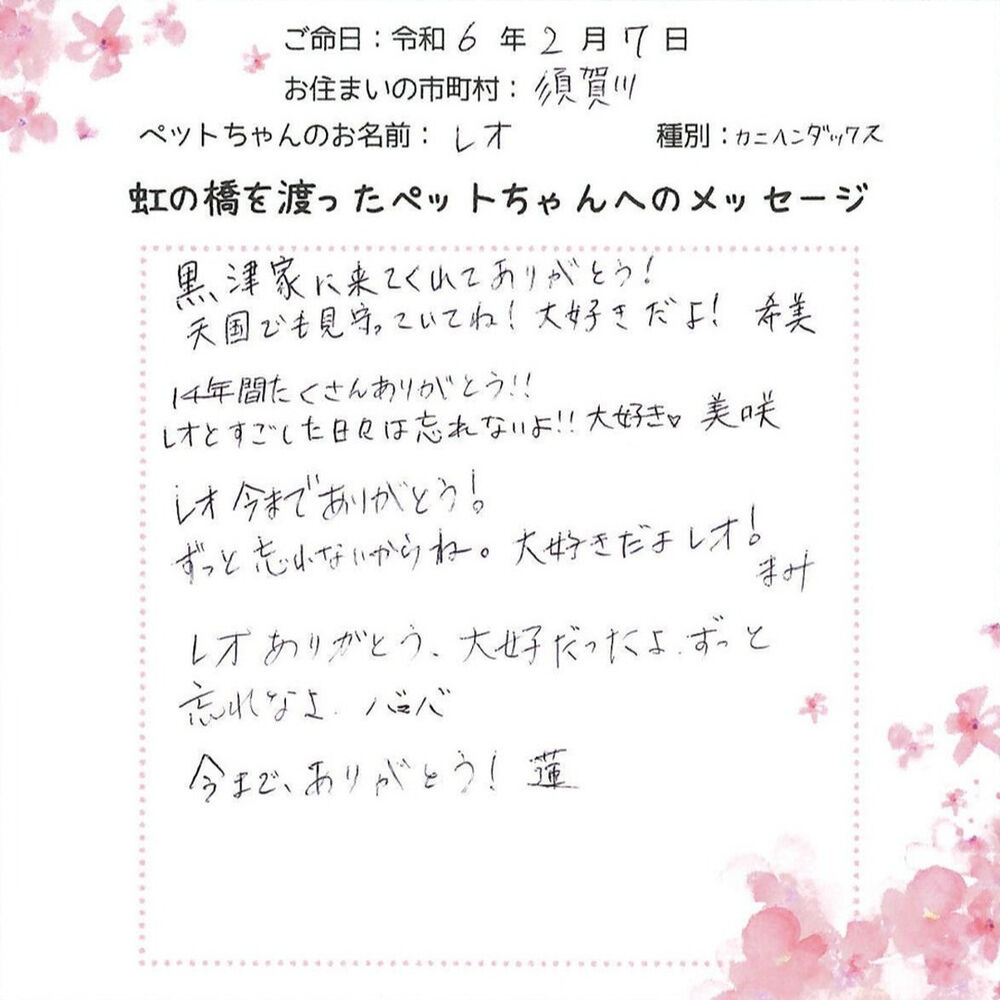 ご命日：令和 6 年 2 月 7 日
お住まいの市町村：須賀川
ペットちゃんのお名前：レオ 種別：カニヘンダックス
虹の橋を渡ったペットちゃんへのメッセージ
黒津家に来てくれてありがとう！
天国でも見守っていてね！大好きだよ！ 希美
14年間たくさんありがとう!!
レオとすごした日々は忘れないよ!! 大好き♡ 美咲
レオ 今までありがとう！
ずっと忘れないからね。大好きだよレオ！
まみ
レオありがとう、大好だったよ.ずっと
忘れなよ.
今まで、ありがとう！ 蓮